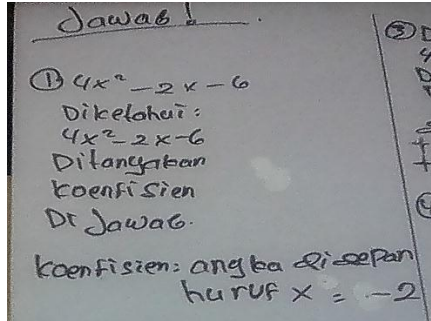 Jawab!
① 4x² - 2x - 6
Diketahui:
4x² - 2x - 6
Ditanyakan
Koenfisien
Di Jawab.
Koenfisien: angka didepan
huruf x = -2
③ D
4
D